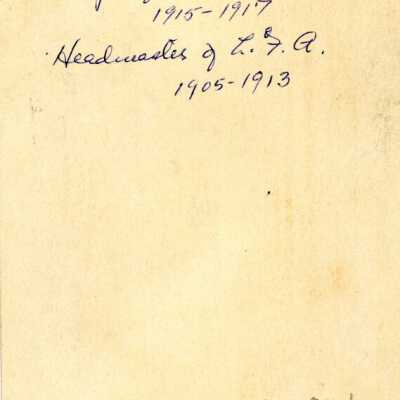 1915-1917
Headmaster of L.F.A.
1905-1913